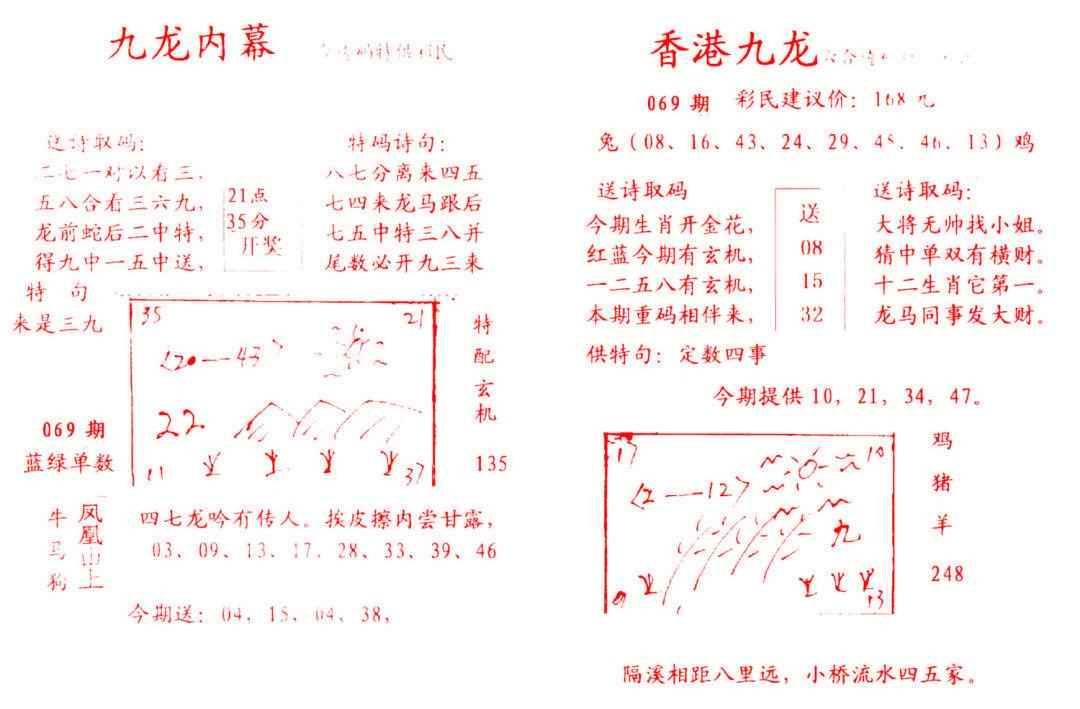 九龙内幕
送诗取码:
二七一对以看三,
五八合看三六九,
龙前蛇后二中特,
得九中一五中送,
21点
35分
开奖
特码诗句:
八七分离来四五
七四来龙马跟后
七五中特三八并
尾数必开九三来
特 句
来是三九
35
21
20—43
22
11
37
特配玄机
135
069期
蓝绿单数
牛马狗
凤凰山上
四七龙吟有传人。挨皮擦内尝甘露,
03、09、13、17、28、33、39、46
今期送: 04, 15, 04, 38,
香港九龙
069期 彩民建议价: 168元
兔(08、16、43、24、29、48、46、13)鸡
送诗取码
今期生肖开金花,
红蓝今期有玄机,
一二五八有玄机,
本期重码相伴来,
送
08
15
32
送诗取码:
大将无帅找小姐。
猜中单双有横财。
十二生肖它第一。
龙马同事发大财。
供特句: 定数四事
今期提供 10, 21, 34, 47。
17
10
2—12
九
9
13
鸡
猪
羊
248
隔溪相距八里远, 小桥流水四五家。